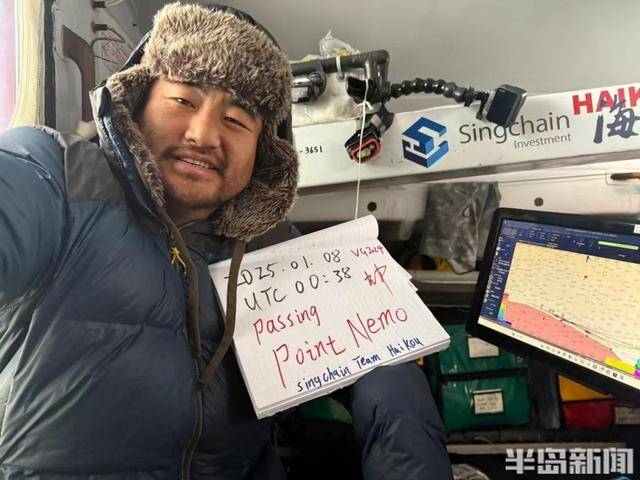 -3651
Singchain
Investment
HAIK
海
2025.01.08 VG2024
UTC 00:38
Passing
Point Nemo
Singchain Team Haikou
半岛新闻